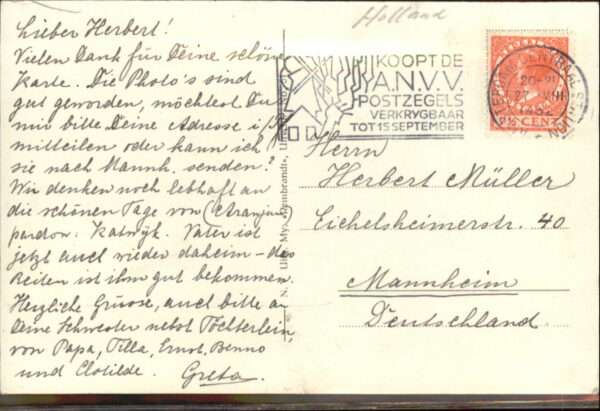 Holland
Lieber Herbert!
Vielen Dank für Deine schöne
Karte. Die Photo's sind
gut geworden, möchtest Du
mir bitte Deine Adresse
mitteilen oder kann ich
sie nach Mannh. senden?
Wir denken noch lebhaft an
die schönen Tage von (Aranjuez)
pardon: Katwijk. Vater ist
jetzt auch wieder daheim – das
Reiten ist ihm gut bekommen.
Herzliche Grüsse, auch bitte an
Deine Schwester nebst Töchterlein
von Papa, Tilla, Ernst, Benno
und Clotilde. Greta.
KOOPT DE
A.N.V.V.
POSTZEGELS
VERKRYGBAAR
TOT 15 SEPTEMBER
CENTRAAL STATION
20-21
27 VIII
1932
CENT
Herrn
Herbert Müller
Eichelsheimerstr. 40
Mannheim
Deutschland.